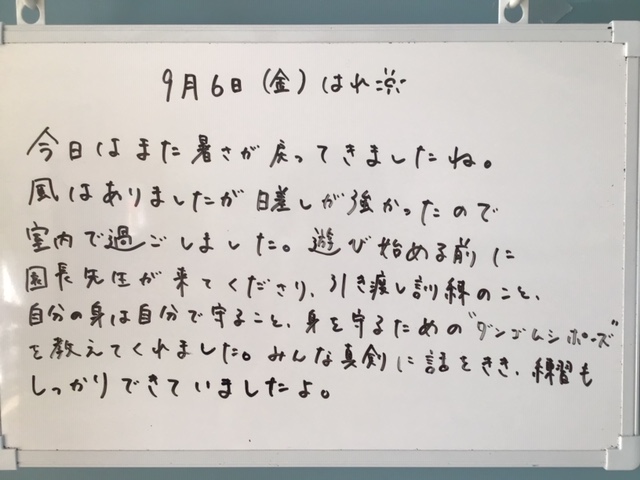 9月6日(金)はれ
今日はまた暑さが戻ってきましたね。
風はありましたが日差しが強かったので
室内で過ごしました。遊び始める前に
園長先生が来てくださり、引き渡し訓練のこと、
自分の身は自分で守ること、身を守るための"ダンゴムシポーズ"
を教えてくれました。みんな真剣に話をきき、練習も
しっかりできていましたよ。